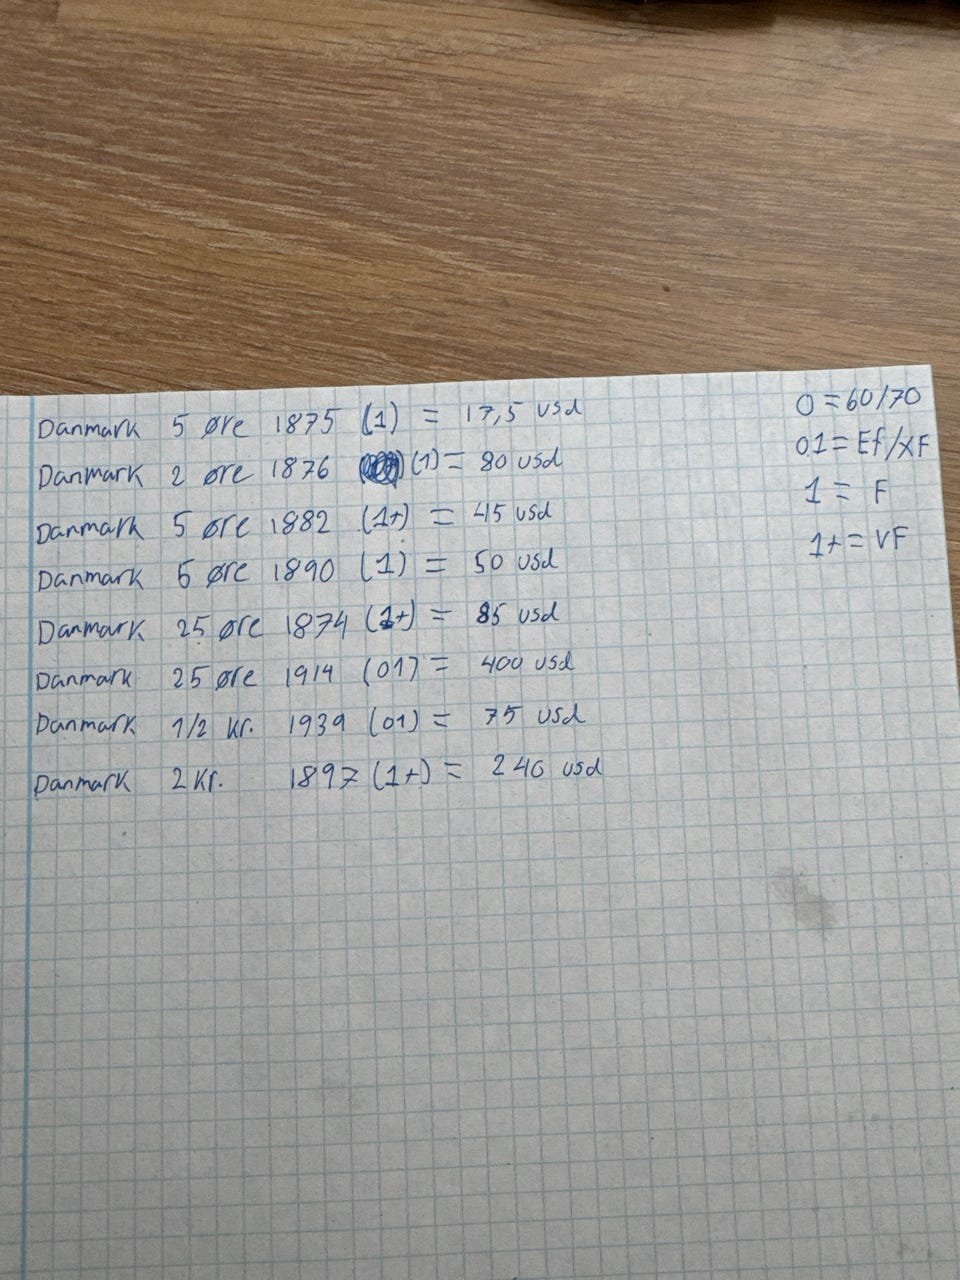 Danmark 5 øre 1875 (1) = 17,5 usd
Danmark 2 øre 1876 (1) = 80 usd
Danmark 5 øre 1882 (1+) = 45 usd
Danmark 5 øre 1890 (1) = 50 usd
Danmark 25 øre 1874 (1+) = 85 usd
Danmark 25 øre 1914 (01) = 400 usd
Danmark 1/2 Kr. 1939 (01) = 75 usd
Danmark 2 Kr. 1897 (1+) = 240 usd
0 = 60/70
01 = EF/XF
1 = F
1+ = VF